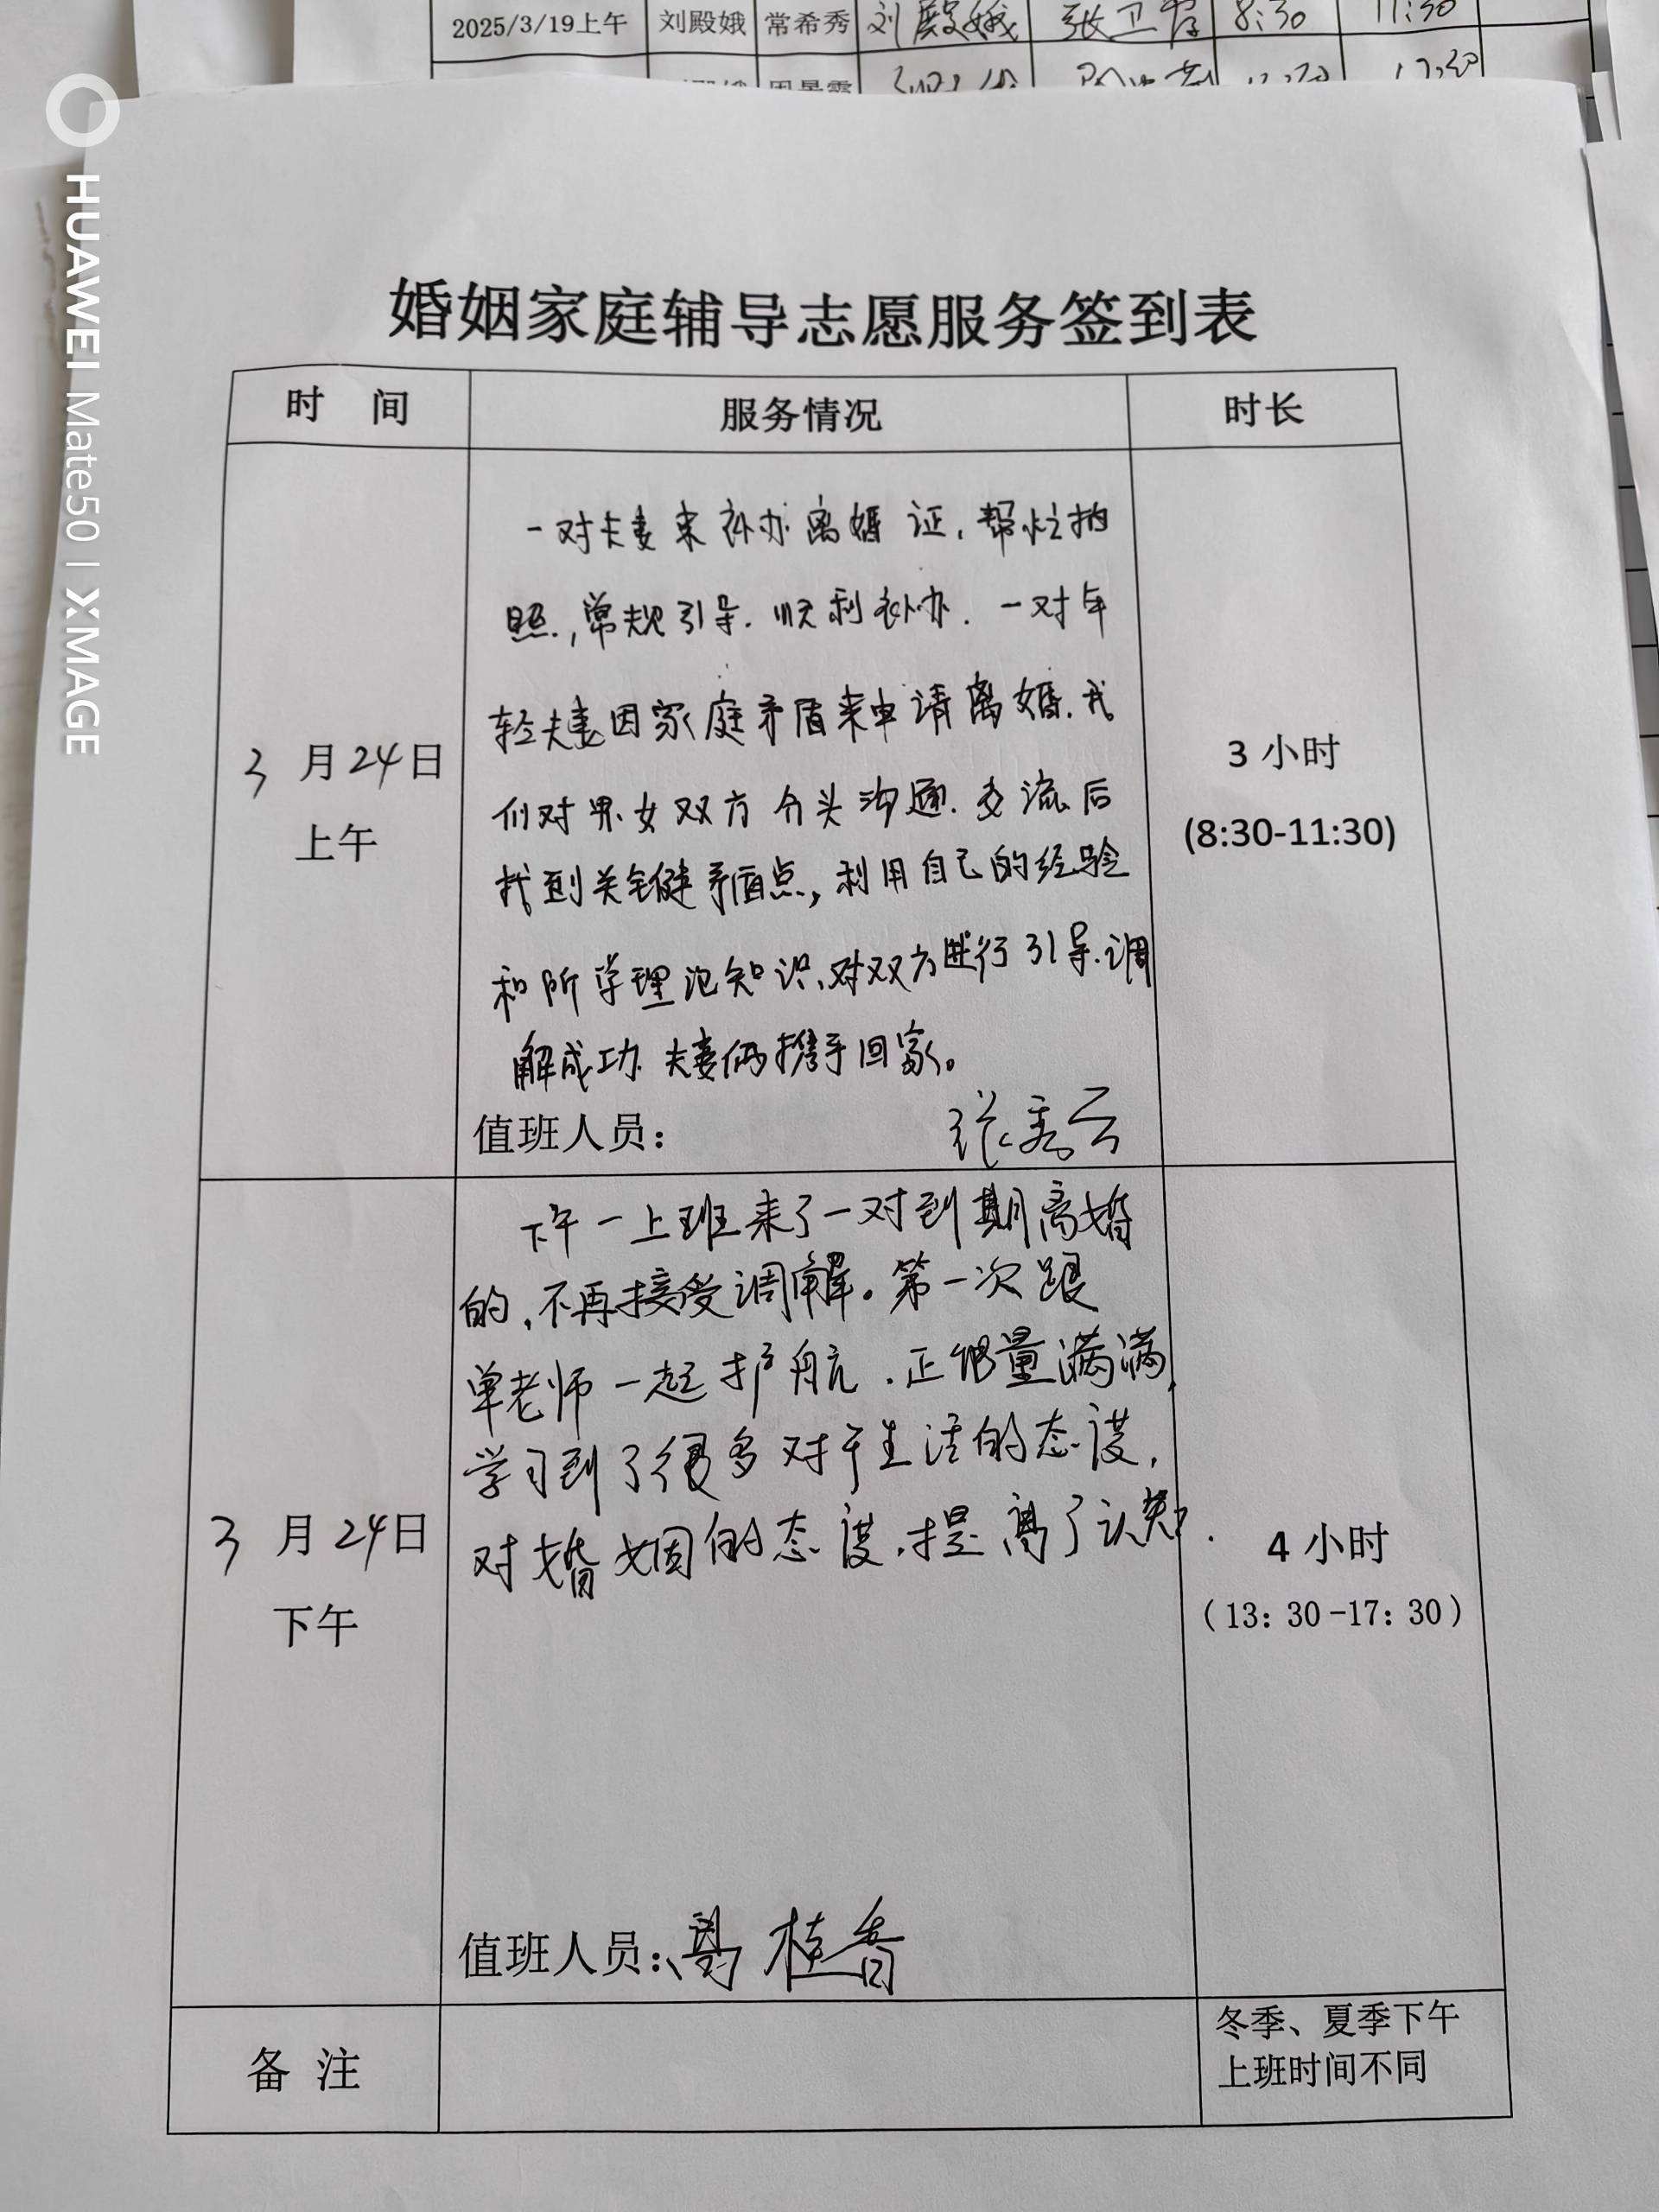 2025/3/19上午 刘殿娥 常希秀 刘殿娥 8:30 11:30
婚姻家庭辅导志愿服务签到表
时 间 服务情况 时长
3 月 24 日
上午
一对夫妻来补办离婚证,帮忙拍
照,常规引导.顺利补办.一对年
轻夫妻因家庭矛盾来申请离婚.我
们对男女双方分头沟通.交流后
找到关键矛盾点,利用自己的经验
和所学理论知识,对双方进行引导.调
解成功.夫妻俩携手回家。
值班人员: 张秀云
3 小时
(8:30-11:30)
3 月 24 日
下午
下午一上班来了一对到期离婚
的,不再接受调解。第一次跟
单老师一起护航.正能量满满,
学习到了很多对于生活的态度,
对婚姻的态度.提高了认知.
值班人员: 高桂香
4 小时
(13:30-17:30)
备 注
冬季、夏季下午
上班时间不同
HUAWEI Mate50 | XMAGE